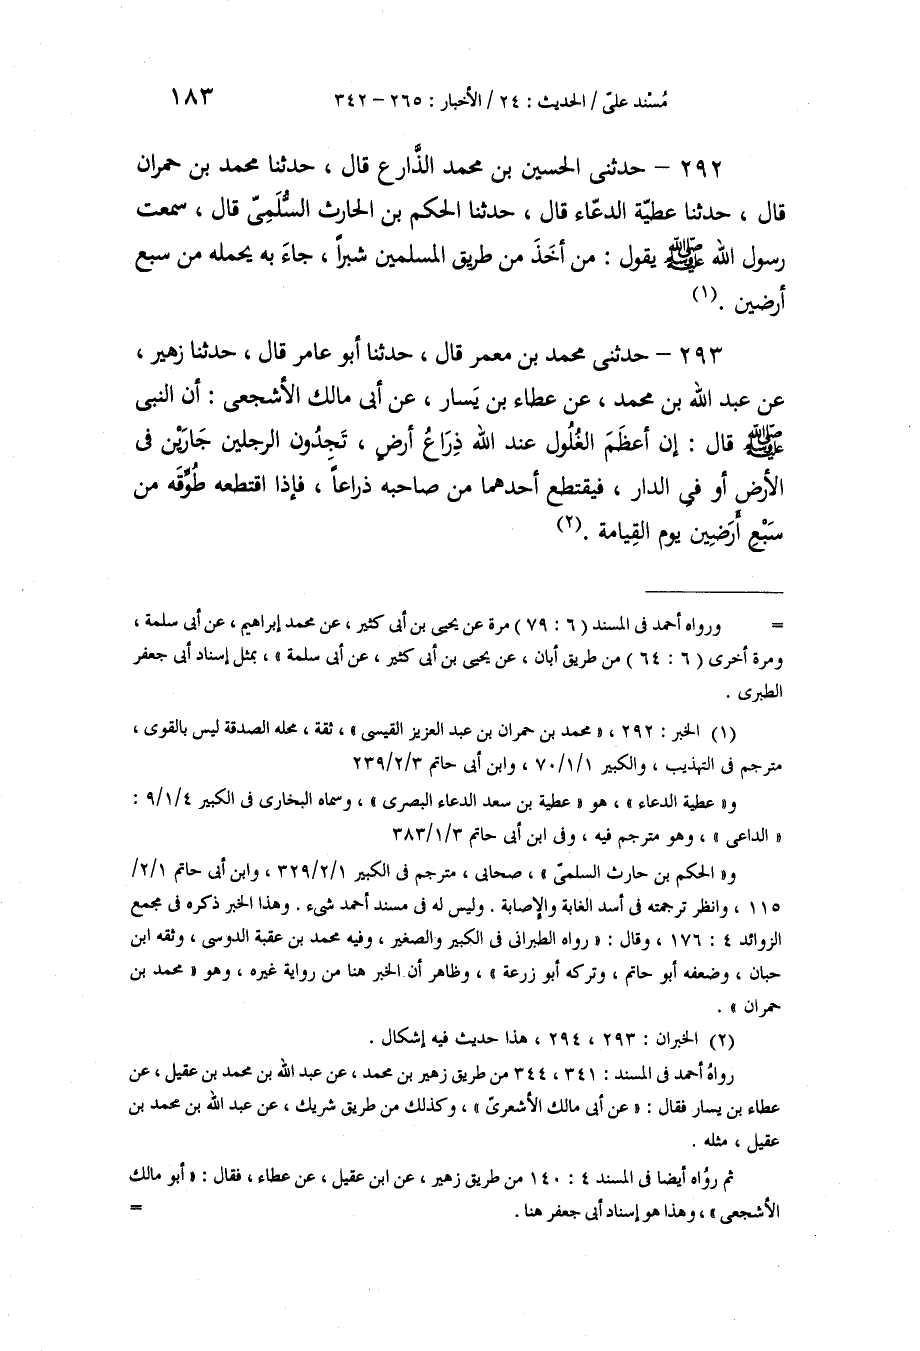 مُسْند علىّ / الحديث : ٢٤ / الأخبار : ٢٦٥ – ٣٤٢ ١٨٣
٢٩٢ – حدثنى الحسين بن محمد الذَّارع قال ، حدثنا محمد بن حمران
قال ، حدثنا عطيّة الدعّاء قال ، حدثنا الحكم بن الحارث السُّلَمِىّ قال ، سمعت
رسول الله ﷺ يقول : من أخَذَ من طريق المسلمين شبراً ، جاءَ به يحمله من سبع
أرضين .(١)
٢٩٣ – حدثنى محمد بن معمر قال ، حدثنا أبو عامر قال ، حدثنا زهير ،
عن عبد الله بن محمد ، عن عطاء بن يَسار ، عن أبى مالك الأشجعى : أن النبى
ﷺ قال : إن أعظَمَ الغُلُول عند الله ذِرَاعُ أرضٍ ، تَجِدُون الرجلين جَارَيْن فى
الأرض أو فى الدار ، فيقتطع أحدهما من صاحبه ذراعاً ، فإذا اقتطعه طُوِّقَه من
سَبْعِ أَرَضِين يوم القِيامة .(٢)
= ورواه أحمد فى المسند ( ٦ : ٧٩ ) مرة عن يحيى بن أبى كثير ، عن محمد إبراهيم ، عن أبى سلمة ،
ومرة أخرى ( ٦ : ٦٤ ) من طريق أبان ، عن يحيى بن أبى كثير ، عن أبى سلمة » ، بمثل إسناد أبى جعفر
الطبرى .
(١) الخبر : ٢٩٢ ، « محمد بن حمران بن عبد العزيز القيسى » ، ثقة ، محله الصدقة ليس بالقوى ،
مترجم فى التهذيب ، والكبير ٧٠/١/١ ، وابن أبى حاتم ٢٣٩/٢/٣
و« عطية الدعاء » ، هو « عطية بن سعد الدعاء البصرى » ، وسماه البخارى فى الكبير ٩/١/٤ :
« الداعى » ، وهو مترجم فيه ، وفى ابن أبى حاتم ٣٨٣/١/٣
و« الحكم بن حارث السلمىّ » ، صحابى ، مترجم فى الكبير ٣٢٩/٢/١ ، وابن أبى حاتم ٢/١/
١١٥ ، وانظر ترجمته فى أسد الغابة والإصابة . وليس له فى مسند أحمد شىء . وهذا الخبر ذكره فى مجمع
الزوائد ٤ : ١٧٦ ، وقال : « رواه الطبرانى فى الكبير والصغير ، وفيه محمد بن عقبة الدوسى ، وثقه ابن
حبان ، وضعفه أبو حاتم ، وتركه أبو زرعة » ، وظاهر أن الخبر هنا من رواية غيره ، وهو « محمد بن
حمران » .
(٢) الخبران : ٢٩٣ ، ٢٩٤ ، هذا حديث فيه إشكال .
رواهُ أحمد فى المسند : ٣٤١ ، ٣٤٤ من طريق زهير بن محمد ، عن عبد الله بن محمد بن عقيل ، عن
عطاء بن يسار فقال : « عن أبى مالك الأشعرىّ » ، وكذلك من طريق شريك ، عن عبد الله بن محمد بن
عقيل ، مثله .
ثم روُاه أيضا فى المسند ٤ : ١٤٠ من طريق زهير ، عن ابن عقيل ، عن عطاء ، فقال : « أبو مالك
الأشجعى » ، وهذا هو إسناد أبى جعفر هنا . =